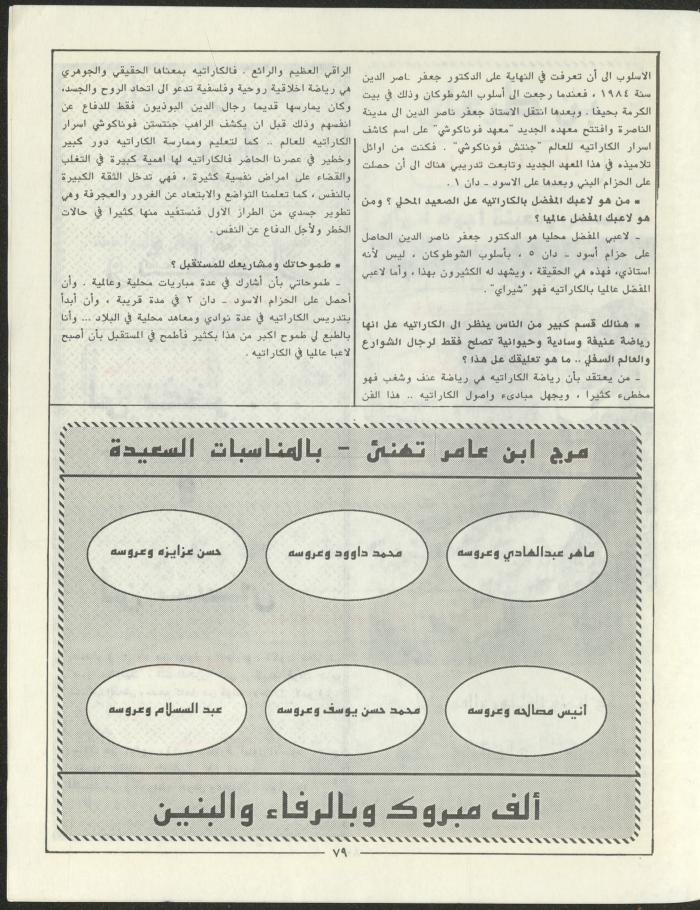 الاسلوب الى أن تعرفت في النهاية على الدكتور جعفر ناصر الدين
سنة ١٩٨٤ ، فعندما رجعت الى أسلوب الشوطوكان وذلك في بيت
الكرمة بحيفا . وبعدها انتقل الاستاذ جعفر ناصر الدين الى مدينة
الناصرة وافتتح معهده الجديد "معهد فوناكوشي" على اسم كاشف
اسرار الكاراتيه للعالم "جنتش فوناكوشي" . فكنت من اوائل
تلاميذه في هذا المعهد الجديد وتابعت تدريبي هناك الى أن حصلت
على الحزام البني وبعدها على الاسود ـ دان ١ .
* من هو لاعبك المفضل بالكاراتيه على الصعيد المحلي ؟ ومن
هو لاعبك المفضل عالميا ؟
ـ لاعبي المفضل محليا هو الدكتور جعفر ناصر الدين الحاصل
على حزام أسود ـ دان ٥ ، بأسلوب الشوطوكان ، ليس لأنه
استاذي، فهذه هي الحقيقة ، ويشهد له الكثيرون بهذا ، وأما لاعبي
المفضل عالميا بالكاراتيه فهو "شيراي" .
* هنالك قسم كبير من الناس ينظر الى الكاراتيه على انها
رياضة عنيفة وسادية وحيوانية تصلح فقط لرجال الشوارع
والعالم السفلي .. ما هو تعليقك على هذا ؟
ـ من يعتقد بأن رياضة الكاراتيه هي رياضة عنف وشغب فهو
مخطىء كثيرا ، ويجهل مبادىء واصول الكاراتيه .. هذا الفن
الراقي العظيم والرائع . فالكاراتيه بمعناها الحقيقي والجوهري
هي رياضة اخلاقية روحية وفلسفية تدعو الى اتحاد الروح والجسد،
وكان يمارسها قديما رجال الدين البوذيون فقط للدفاع عن
انفسهم وذلك قبل ان يكشف الراهب جنتستن فوناكوشي اسرار
الكاراتيه للعالم .. كما لتعليم وممارسة الكاراتيه دور كبير
وخطير في عصرنا الحاضر فالكاراتيه لها اهمية كبيرة في التغلب
والقضاء على امراض نفسية كثيرة ، فهي تدخل الثقة الكبيرة
بالنفس ، كما تعلمنا التواضع والابتعاد عن الغرور والعجرفة وهي
تطوير جسدي من الطراز الاول فنستفيد منها كثيرا في حالات
الخطر ولأجل الدفاع عن النفس .
* طموحاتك ومشاريعك للمستقبل ؟
ـ طموحاتي بأن أشارك في عدة مباريات محلية وعالمية . وأن
أحصل على الحزام الاسود ـ دان ٢ في مدة قريبة ، وأن أبدأ
بتدريس الكاراتيه في عدة نوادي ومعاهد محلية في البلاد ... وأنا
بالطبع لي طموح اكبر من هذا بكثير فأطمح في المستقبل بأن أصبح
لاعبا عالميا في الكاراتيه .
مرج ابن عامر تهنئ - بالمناسبات السعيدة
ماهر عبدالهادي وعروسه
محمد داوود وعروسه
حسن عزايزه وعروسه
انيس مصالحه وعروسه
محمد حسن يوسف وعروسه
عبد السلام وعروسه
ألف مبروك وبالرفاء والبنين
٧٩